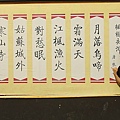 月落烏啼
霜滿天
江楓漁火
對愁眠
姑蘇城外
寒山寺